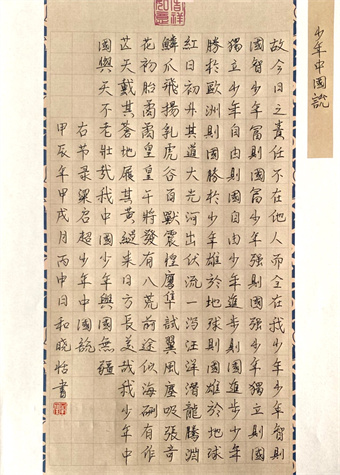 少年中國説
吉祥如意
故今日之責任不在他人而全在我少年少年智則
國智少年富則國富少年强則國强少年獨立則國
獨立少年自由則國自由少年進步則國進步少年
勝於歐洲則國勝於少年雄於地球則國雄於地球
紅日初升其道大光河出伏流一瀉汪洋潛龍騰淵
鱗爪飛揚乳虎谷百獸震惶鷹隼試翼風塵吸張奇
花初胎矞矞皇皇干將發有八荒前途似海硎有作
芒天戴其蒼地履其黃縱来日方長美哉我少年中
國與天不老壯哉我中國少年與國無疆
右节录梁启超少年中國説
甲辰年甲戌月丙申日和曉怡書